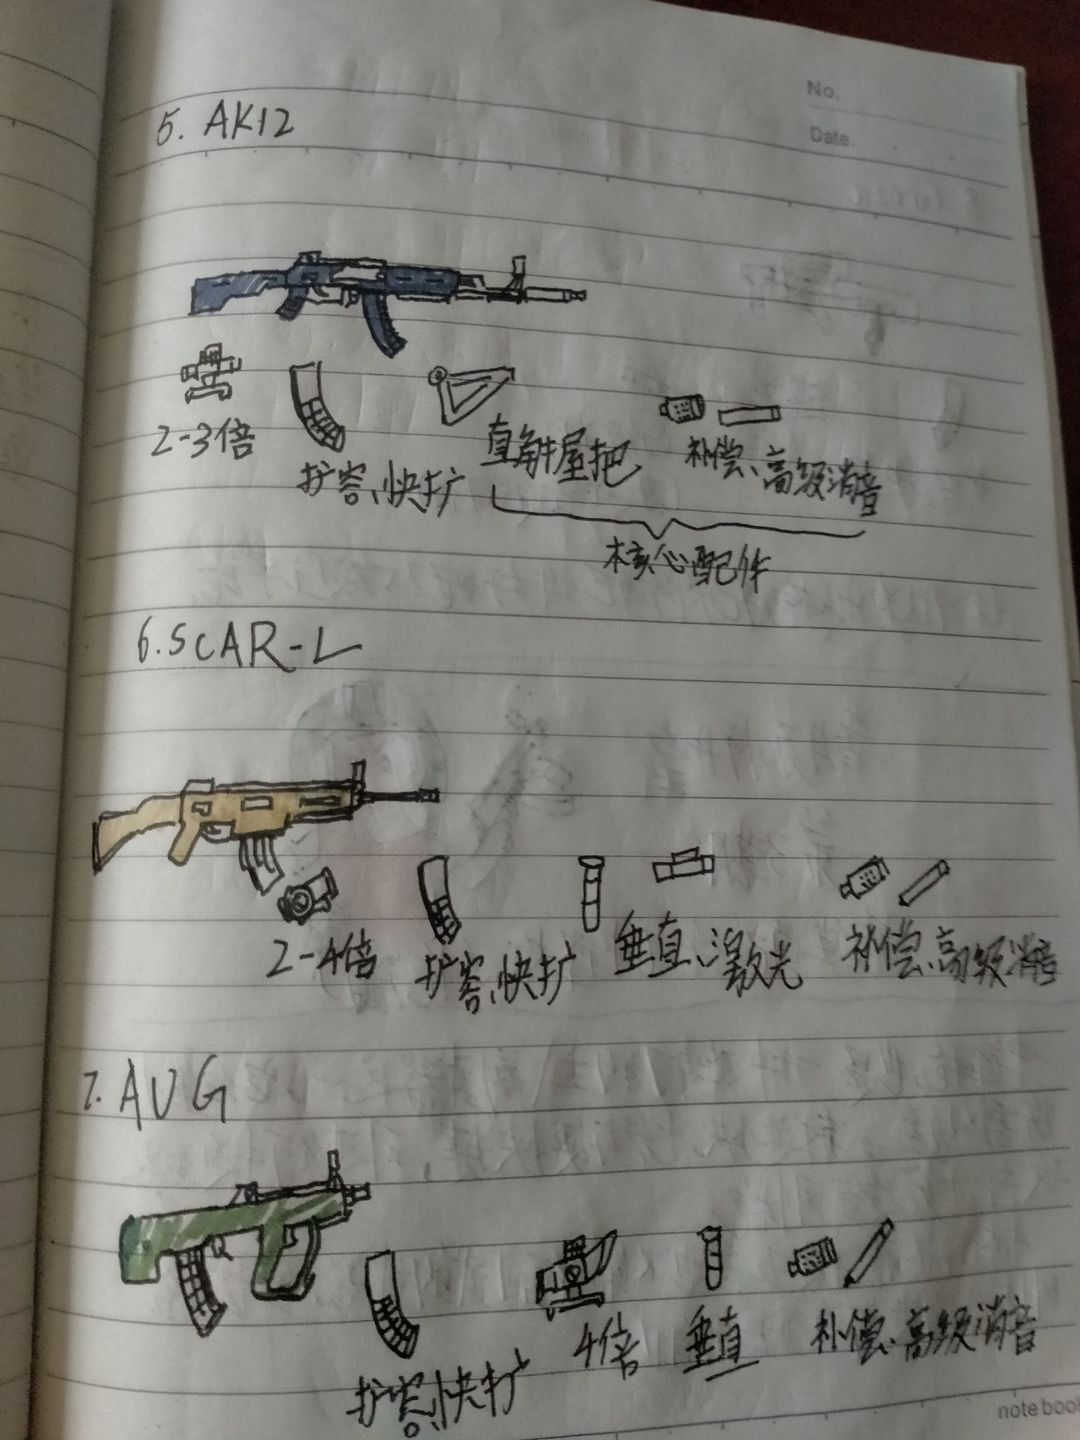 No.
Date.
5. AK12
2-3倍
扩容、快扩
直角握把
补偿、高级消音
核心配件
6. SCAR-L
2-4倍
扩容、快扩
垂直、激光
补偿、高级消音
7. AUG
扩容、快扩
4倍
垂直
补偿、高级消音
notebook